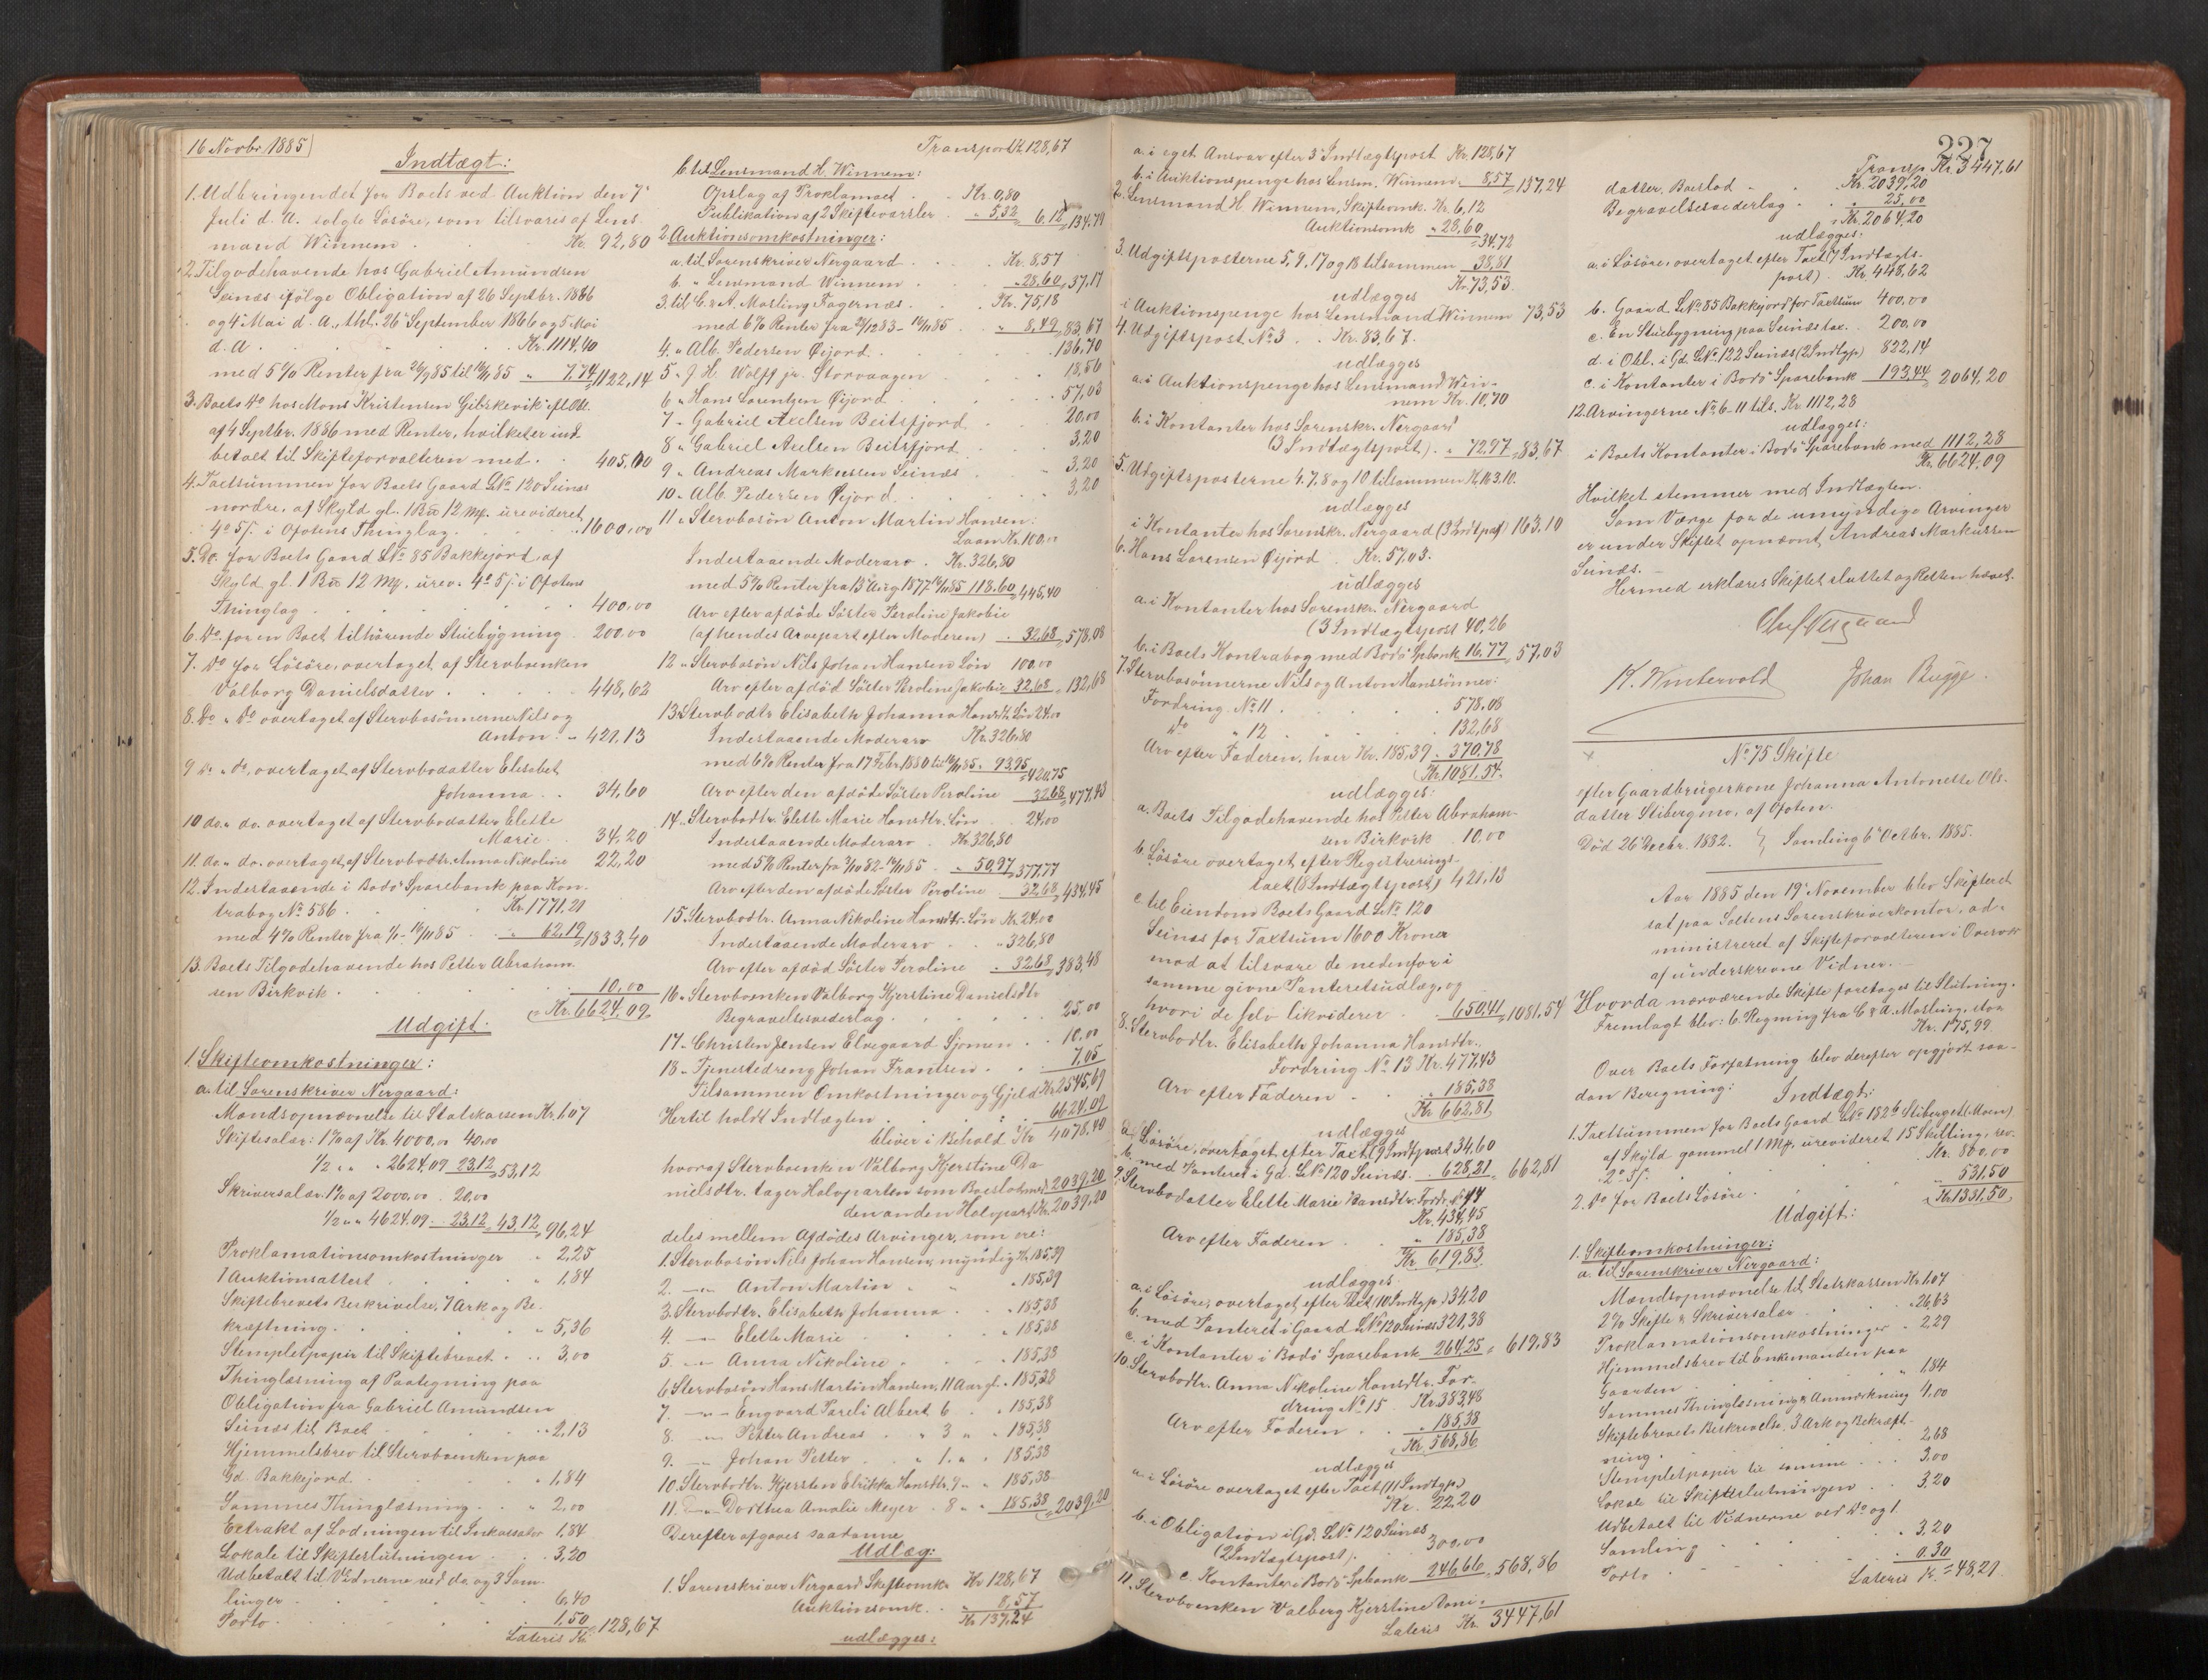 16 Novbr 1885
Indtægt:
1. Udbringendet for Boets ved Auktion den 7'
Juli d. A. solgte Løsöre, som tilsvares af Lens
mand Winnem . Kr. 92,80
2. Tilgodehavende hos Gabriel Amundsen
Seinæs ifølge Obligation af 26 Septbr. 1866
og 4' Mai d. A., thl. 26' September 1866 og 5 Mai
d. A . . Kr. 1114,40
med 5% Renter fra 26/9 85 til 16/11 85 " 7,74 1122,14
3. Boets do hos Mons Kristensen Gilskevik efl. Obl.
af 4 Septbr. 1886 med Renter, hvilket er ind-
betalt til Skifteforvalteren med . . 405,00
4. Taxtsummen for Boets Gaard LNo 120 Seinæs
nordre, af Skyld gl. 1 Bu 12 Mk. urevideret
4o 5ƒ. i Ofotens Thinglag . 1600,00
5. Do. for Boets Gaard LNo 85 Bakkejord, af
Skyld gl. 1 Bu 12 Mk. urev. 4o 5ƒ. i Ofotens
Thinglag . . . 400,00
6. do. for en Boet tilhørende Stuebygning . 200,00
7. do for Løsöre, overtaget af Stervboenken
Valborg Danielsdatter . . 448,62
8. Do " do overtaget af Stervbosönnerne Nils og
Anton . - 421,13
9 do " do, overtaget af Stervbodatter Elisabet
Johanna . . 34,60
10 do. " do. overtaget af Stervbodatter Elette
Marie . 34,20
11. do. " do. overtaget af Stervbodtr. Anna Nikoline 22,20
12. Indestaaende i Bodö Sparebank paa Kon-
trabog No 586 . Kr. 1771,21
med 4% Renter fra 1/1 - 16/11 85 . " 62,19 1833,40
13. Boets Tilgodehavende hos Petter Abraham-
sen Birkvik . . 10,00
Kr. 6624,09
Udgift.
1. Skifteomkostninger:
a. til Sorenskriver Nergaard:
Mandsopnævnelse til Statskassen Kr. 1,07
Skiftesalær: 1% af Kr. 4000,00 40,00
1/2 " " 2624,09 23,12 53,12
Skriversalær. 1% af 2000,00 . 20,00
1/2 " " 4624,09 - 23,12 43,12 96,24
Proklamationsomkostninger " 2,25
1 Auktionsattest . " 1,84
Skiftebrevets Beskrivelse, 7 Ark og Be-
kræftning . . " 5,36
Stempletpapir til Skiftebrevet . . . 3,00
Thinglæsning af Paategning paa
Obligation fra Gabriel Amundsen
Seinæs til Boet . . . 2,13
Hjemmelsbrev til Stervboenken paa
Gd. Bakkejord . . " 1,84
Sammes Thinglæsning . . " 2,00
Extrakt af Lodningen til Inkassator 1,84
Lokale til Skifteslutningen . . 3,20
Udbetalt til Vidnerne ved do og 3 Sam-
linger . . . 6,40
Porto . . 1,50 128,67
Lateris Kr.
Transport Kr. 128,67
b. til Lensmand H. Winnem:
Opslag af Proklamaet . . Kr. 0,80
Publikation af 2 Skiftevarsler . " 5,32 6,12 134,79
2. Auktionsomkostninger:
a. til Sorenskriver Nergaard . . Kr. 8,57
b. " Lensmand Winnem . . " 28,60 37,17
3. til C. & A. Mosling Fagernæs . Kr. 75,18
med 6% Renter fra 29/12 83 - 16/11 85 . " 8,49 83,67
4. " Alb. Pedersen Øijord . . . 136,70
5 " J. H. Wolff jr. Storvaagen . . 18,56
6 " Hans Lorentzen Øijord . . . 57,03
7 - Gabriel Axelsen Beitsfjord . 20,00
8 " Gabriel Axelsen Beitsfjord . . 3,20
9 " Andreas Markussen Seinæs . " 3,20
10 " Alb. Pedersen Øijord . . 3,20
11 " Stervbosön Anton Martin Hansen:
Laan Kr. 100,00
Indestaaende Moderarv . Kr. 326,80
med 5% Renter fra 13' Aug 1877 16/11 85 118,60 445,40
Arv efter afdöde Söster Peroline Jakobie
(af hendes Arvepart efter Moderen) . 32,68 578,08
12 " Stervbosön Nils Johan Hansen Lön 100,00
Arv efter afdöd Söster Peroline Jakobie 32,68 132,68
13 Stervbodtr. Elisabeth Johanna Hansdtr. Lön 24,00
Indestaaende Moderarv Kr. 326,80
med 6% Renter fra 17 Febr 1880 til 16/11 85 . 93,95 420,75
Arv efter den afdöde Söster Peroline 32,68 477,43
14. Stervbodtr. Elette Marie Hansdtr. Lön 24,00
Indestaaende Moderarv . Kr. 326,80
med 5% Renter fra 7/10 82 - 16/11 85 . " 50,97 377,77
Arv efter den afdöde Söster Peroline . 32,68 434,45
15. Stervbodtr. Anna Nikoline Hansdtr. Lön Kr. 24,00
Indestaaende Moderarv . . " 326,80
Arv efter afdöd Söster Peroline . 32,68 383,48
16 " Stervboenken Valborg Kjerstine Danielsdtr
Begravelsesvederlag . . . 25,00
17 - Christen Jensen Elvegaard Sjomen . . 10,00
18 - Tjenestedreng Johan Frantsen . . 7,05
Tilsammen Omkostninger og Gjeld Kr. 2545,69
Hertil holdt Indtægten . . " 6624,09
bliver i Behold Kr 4078,40
hvoraf Stervboenken Valborg Kjerstine Da-
nielsdtr. tager Halvparten som Boeslod med 2039,20
den anden Halvpart Kr. 2039,20
deles mellem Afdödes Arvinger, som ere:
1. Stervbosön Nils Johan Hansen, myndig Kr. 185,39
2. — Anton Martin " " . 185,39
3. Stervbodtr. Elisabeth Johanna . . " 185,38
4. — Elette Marie . . " 185,38
5. — Anna Nikoline . . " 185,38
6 Stervbosön Hans Martin Hansen, 11 Aar gl. " 185,38
7. — Engvard Pareli Albert 6 . " 185,38
8. — Petter Andreas . " 3 " " 185,38
9. — Johan Petter . " 1. " " 185,38
10. Stervbodtr. Kjersten Elrikka Hansdtr. 9 " " 185,38
11. — Dorthea Amalie Meyer 8 " " 185,38 2039,20
Derefter afgaves saadanne
Udlæg:
1. Sorenskriver Nergaard Skifteomk. Kr 128,67
Auktionsomk. . " 8,57
Kr. 137,24
udlægges:
a. i eget Ansvar efter 3' Indtægtspost Kr. 128,67
b. i Auktionspenge hos Lensm. Winnem " 8,57 137,24
2. Lensmand H. Winnem, Skifteomk. Kr. 6,12
Auktionsomk " 28,60
34,72
3. Udgiftsposterne 5, 9, 17 og 18 tilsammen 38,81
Kr. 73,53
udlægges
i Auktionspenge hos Lensmand Winnem 73,53
4. Udgiftspost No 3 . . Kr. 83,67.
udlægges
a. i Auktionspenge hos Lensmand Win-
nem Kr. 10,70
b. i Kontanter hos Sorenskr. Nergaard
(3 Indtægtspost) . " 72,97 83,67
5. Udgiftsposterne 4. 7. 8 og 10 tilsammen Kr. 163,10.
udlægges
i Kontanter hos Sorenskr. Nergaard (3 Indtpost) 163,10
6. Hans Lorensen Øijord . Kr. 57,03.
udlægges
a. i Kontanter hos Sorenskr. Nergaard
(3 Indtægtspost 40,26
b. i Boets Kontrabog med Bodö Spbank 16,77 57,03
7. Stervbosönnerne Nils og Anton Hanssönner:
Fordring No 11 . . . 578,08
do " 12 . . 132,68
Arv efter Faderen, hver Kr. 185,39 . 370,78
Kr. 1081,54.
udlægges:
a. Boets Tilgodehavende hos Petter Abraham-
sen Birkvik 10,00
b. Løsöre overtaget efter Registrerings-
taxt (8 Indtægtspost) 421,13
c. til Eiendom Boets Gaard LNo 120
Seinæs for Taxtsum 1600 Kroner
mod at tilsvare de nedenfor i
samme givne Panteretsudlæg, og
hvori de selv likviderer . . 650,41 1081,54
8. Stervbodtr. Elisabeth Johanna Hansdtr.
Fordring No 13 Kr. 477,43
Arv efter Faderen . " 185,38
Kr. 662,81
udlægges
a. Løsöre, overtaget efter Taxt (9 Indtpost 34,60
b. med Panteret i Gd. LNo 120 Seinæs . 628,21 662,81
9. Stervbodatter Elette Marie Hansdtr. Fordr. No 14
Kr. 434,45
Arv efter Faderen . . " 185,38
Kr. 619,83
udlægges
a. i Løsöre, overtaget efter Taxt (10 Indtgp.) 34,20
b. med Panteret i Gaard LNo 120 Seinæs 321,38
c. i Kontanter i Bodö Sparebank 264,25 619,83
10. Stervbodtr. Anna Nikoline Hansdtr. For-
dring No 15 Kr. 383,48
Arv efter Faderen . . " 185,38
Kr. 568,86
udlægges
a. i Løsöre overtaget efter Taxt (11 Indtgp.)
Kr. 22,20
b. i Obligation i Gd. LNo 120 Seinæs
(2 Indtægtspost) . 300,00
c. Kontanter i Bodö Spbank 246,66 568,86
11. Stervboenken Valborg Kjerstine Dani-
Lateris Kr. 3447,61
227
Transp. Kr. 3447,61
datter. Boeslod . . Kr. 2039,20
Begravelsesvederlag . . " 25,00
Kr. 2064,20
udlægges:
a. i Løsöre, overtaget efter Taxt (7 Indtægts-
post) . Kr. 448,62
b. Gaard LNo 85 Bakkejord for Taxtsum 400,00
c. En Stuebygning paa Seinæs tax. . 200,00
d. i Obl. i Gd. LNo 122 Seinæs (2 Indtgp) 822,14
e. i Kontanter i Bodö Sparebank 193,44 2064,20
12. Arvingerne No 6-11 tils. Kr. 1112,28
udlægges:
i Boets Kontanter i Bodö Sparebank med 1112,28
Kr. 6624,09
Hvilket stemmer med Indtægten.
Som Værge for de umyndige Arvinger
er under Skiftet opnævnt Andreas Markussen
Seinæs. -
Hermed erklæres Skiftet sluttet og Retten hævet.
Chr. Nergaard
K. Wintervold Johan Bugge.
No 75 Skifte
efter Gaardbrugerkone Johanna Antonette Ols-
datter Stibergmo, af Ofoten.
Död 26' Decbr. 1882. } Samling 6' Octbr. 1885.
Aar 1885 den 19' November blev Skifteret
sat paa Saltens Sorenskriverkontor, ad-
ministreret af Skifteforvalteren i Overvær
af underskrevne Vidner. -
Hvorda nærværende Skifte foretages til Slutning.
Fremlagt blev: 6. Regning fra C & A. Mosling, stor
Kr. 175,99.
Over Boets Forfatning blev derefter opgjort saa-
dan Beregning: Indtægt:
1. Taxtsummen for Boets Gaard LNo 182b Stiberget (Moen)
af Skyld gammel 1 Mk, urevideret 15 Skilling, rev.
2o 5ƒ. . . Kr. 800,00
2. do for Boets Løsöre . . " 531,50
Kr. 1331,50
Udgift:
1. Skifteomkostninger:
a. til Sorenskriver Nergaard:
Mandsopnævnelse til Statskassen Kr. 1,07
2% Skifte & Skriversalær . . " 26,63
Proklamationsomkostninger " 2,29
Hjemmelsbrev til Enkemanden paa
Gaarden . . " 1,84
Sammes Thinglæsning & Anmærkning 4,00
Skiftebrevets Beskrivelse, 3 Ark og Bekræft-
ning . . 2,68
Stempletpapir til samme . . . 3,00
Lokale til Skifteslutningen . . 3,20
Udbetalt til Vidnerne ved do og 1
Samling . . " 3,20
Porto . . " 0,30
Lateris Kr. 48,21